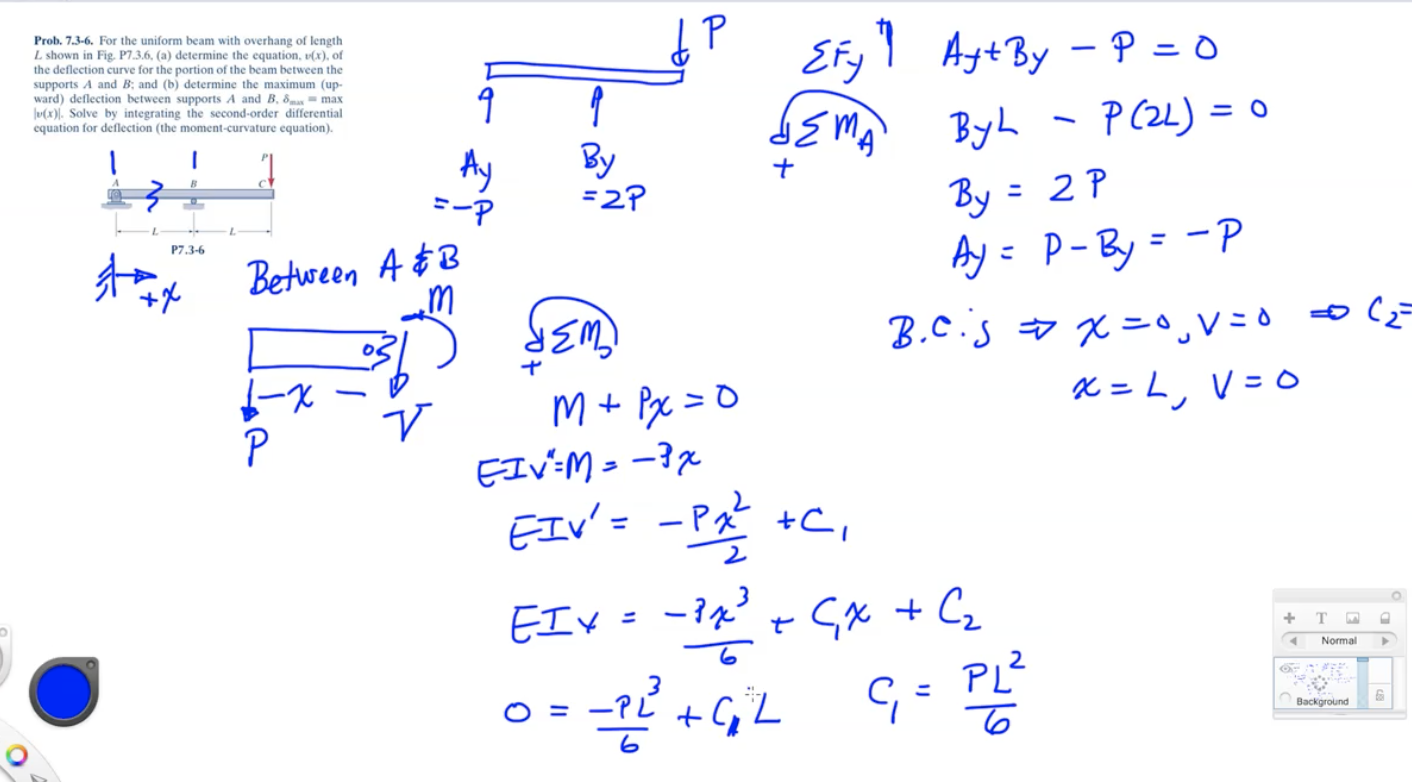 Prob. 7.3-6. For the uniform beam with overhang of length
L shown in Fig. P7.3.6, (a) determine the equation, v(x), of
the deflection curve for the portion of the beam between the
supports A and B; and (b) determine the maximum (up-
ward) deflection between supports A and B, δmax = max
|v(x)|. Solve by integrating the second-order differential
equation for deflection (the moment-curvature equation).
A B C P
L L
P7.3-6
+x
P
Ay By
=-P =2P
ΣFy + Ay+By - P = 0
ΣMA + ByL - P(2L) = 0
By = 2P
Ay = P-By = -P
B.C.'s ⇒ x=0, V=0 ⇒ C2=
x=L, V=0
Between A & B
M
x
V
P
ΣMo +
M + Px = 0
EIV"=M = -Px
EIV' = -Px²/2 + C1
EIV = -Px³/6 + C1x + C2
0 = -PL³/6 + C1L C1 = PL²/6
T
Normal
Background